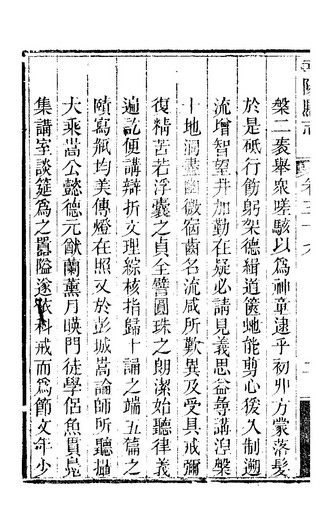 陽縣志
卷三十六
二
槃二袠舉衆嗟駭以爲神童逮乎初丱方蒙落髮
於是砥行飭躬架德緝道篋虵能剪心猨入制遡
流增智望井加勤在疑必請見義思益尋講涅槃
十地洞盡幽微宿齒名流咸所歎異及受具戒彌
復精苦若浮囊之貞全譬圓珠之朗潔始聽律義
遍訖便講辯折文理綜核指歸十誦之端五篇之
賾寫瓶均美傳燈在照又於彭城嵩論師所聽攝
大乘嵩公懿德元猷蘭薰月暎門徒學侶魚貫鳧
集講室談筵爲之囂隘遂依科戒而爲節文年少